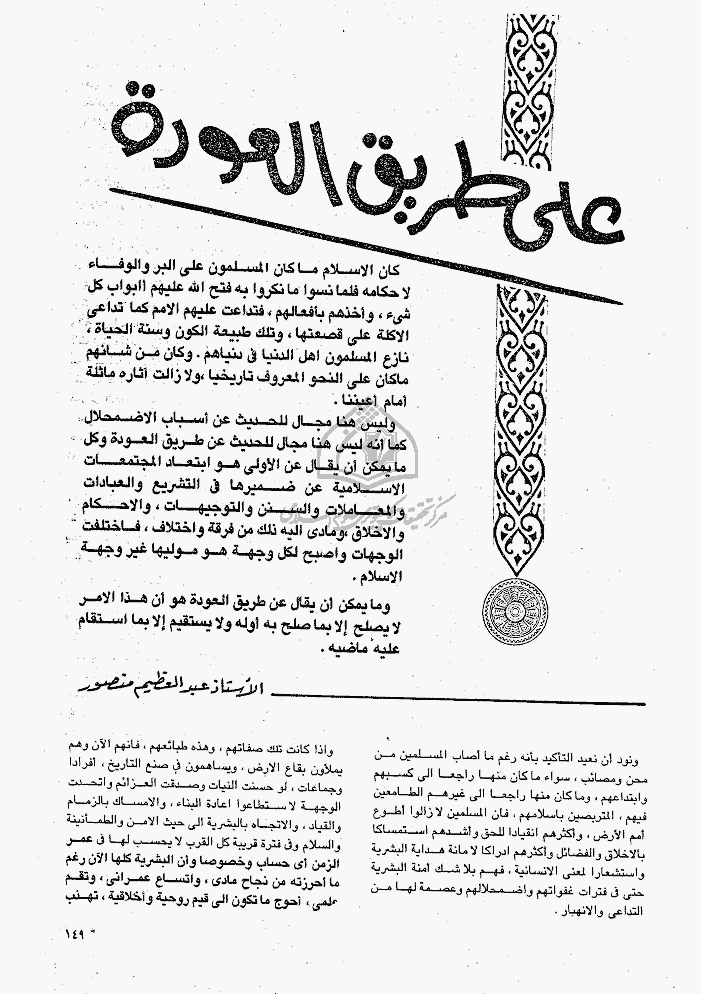 على طريق العودة
كان الاسلام ما كان المسلمون على البر والوفاء
لاحكامه فلما نسوا ما نكروا به فتح الله عليهم اابواب كل
شىء ، وأخذهم بافعالهم ، فتداعت عليهم الامم كما تداعى
الاكلة على قصعتها ، وتلك طبيعة الكون وسنة الحياة ،
نازع المسلمون اهل الدنيا فى دنياهم . وكان من شانهم
ماكان على النحو المعروف تاريخيا ، ولا زالت أثاره ماثلة
أمام أعيننا .
وليس هنا مجال للحديث عن أسباب الاضمحلال
كما إنه ليس هنا مجال للحديث عن طريق العودة وكل
ما يمكن أن يقال عن الأولى هو ابتعاد المجتمعات
الاسلامية عن ضميرها فى التشريع والعبادات
والمعاملات والسنن والتوجيهات ، والاحكام
والاخلاق ، ومادى اليه ذلك من فرقة واختلاف ، فاختلفت
الوجهات واصبح لكل وجهة هو موليها غير وجهة
الاسلام .
وما يمكن أن يقال عن طريق العودة هو أن هذا الامر
لا يصلح إلا بما صلح به أوله ولا يستقيم إلا بما استقام
عليه ماضيه .
الأستاذ عبد العظيم منصور
ونود أن نعيد التأكيد بأنه رغم ما أصاب المسلمين من
محن ومصائب ، سواء ما كان منها راجعا الى كسبهم
وابتداعهم ، وما كان منها راجعا الى غيرهم الطامعين
فيهم ، المتربصين باسلامهم ، فان المسلمين لازالوا أطوع
أمم الأرض ، وأكثرهم انقيادا للحق وأشدهم استمساكا
بالاخلاق والفضائل وأكثرهم ادراكا لامانة هداية البشرية
واستشعارا لمعنى الانسانية ، فهم بلا شك أمنة البشرية
حتى فى فترات غفواتهم واضمحلالهم وعصمة لها من
التداعى والانهيار .
واذا كانت تلك صفاتهم ، وهذه طبائعهم ، فانهم الآن وهم
يملأون بقاع الارض ، ويساهمون فى صنع التاريخ ، أفرادا
وجماعات ، لو حسنت النيات وصدقت العزائم واتحدت
الوجهة لاستطاعوا اعادة البناء ، والامساك بالزمام
والقياد ، والاتجاه بالبشرية الى حيث الامن والطمأنينة
والسلام وفى فترة قريبة كل القرب لا يحسب لها فى عمر
الزمن أى حساب وخصوصا وأن البشرية كلها الآن رغم
ما أحرزته من نجاح مادى ، واتساع عمرانى ، وتقدم
علمى ، أحوج ما تكون الى قيم روحية وأخلاقية ، تهذب
١٤٩